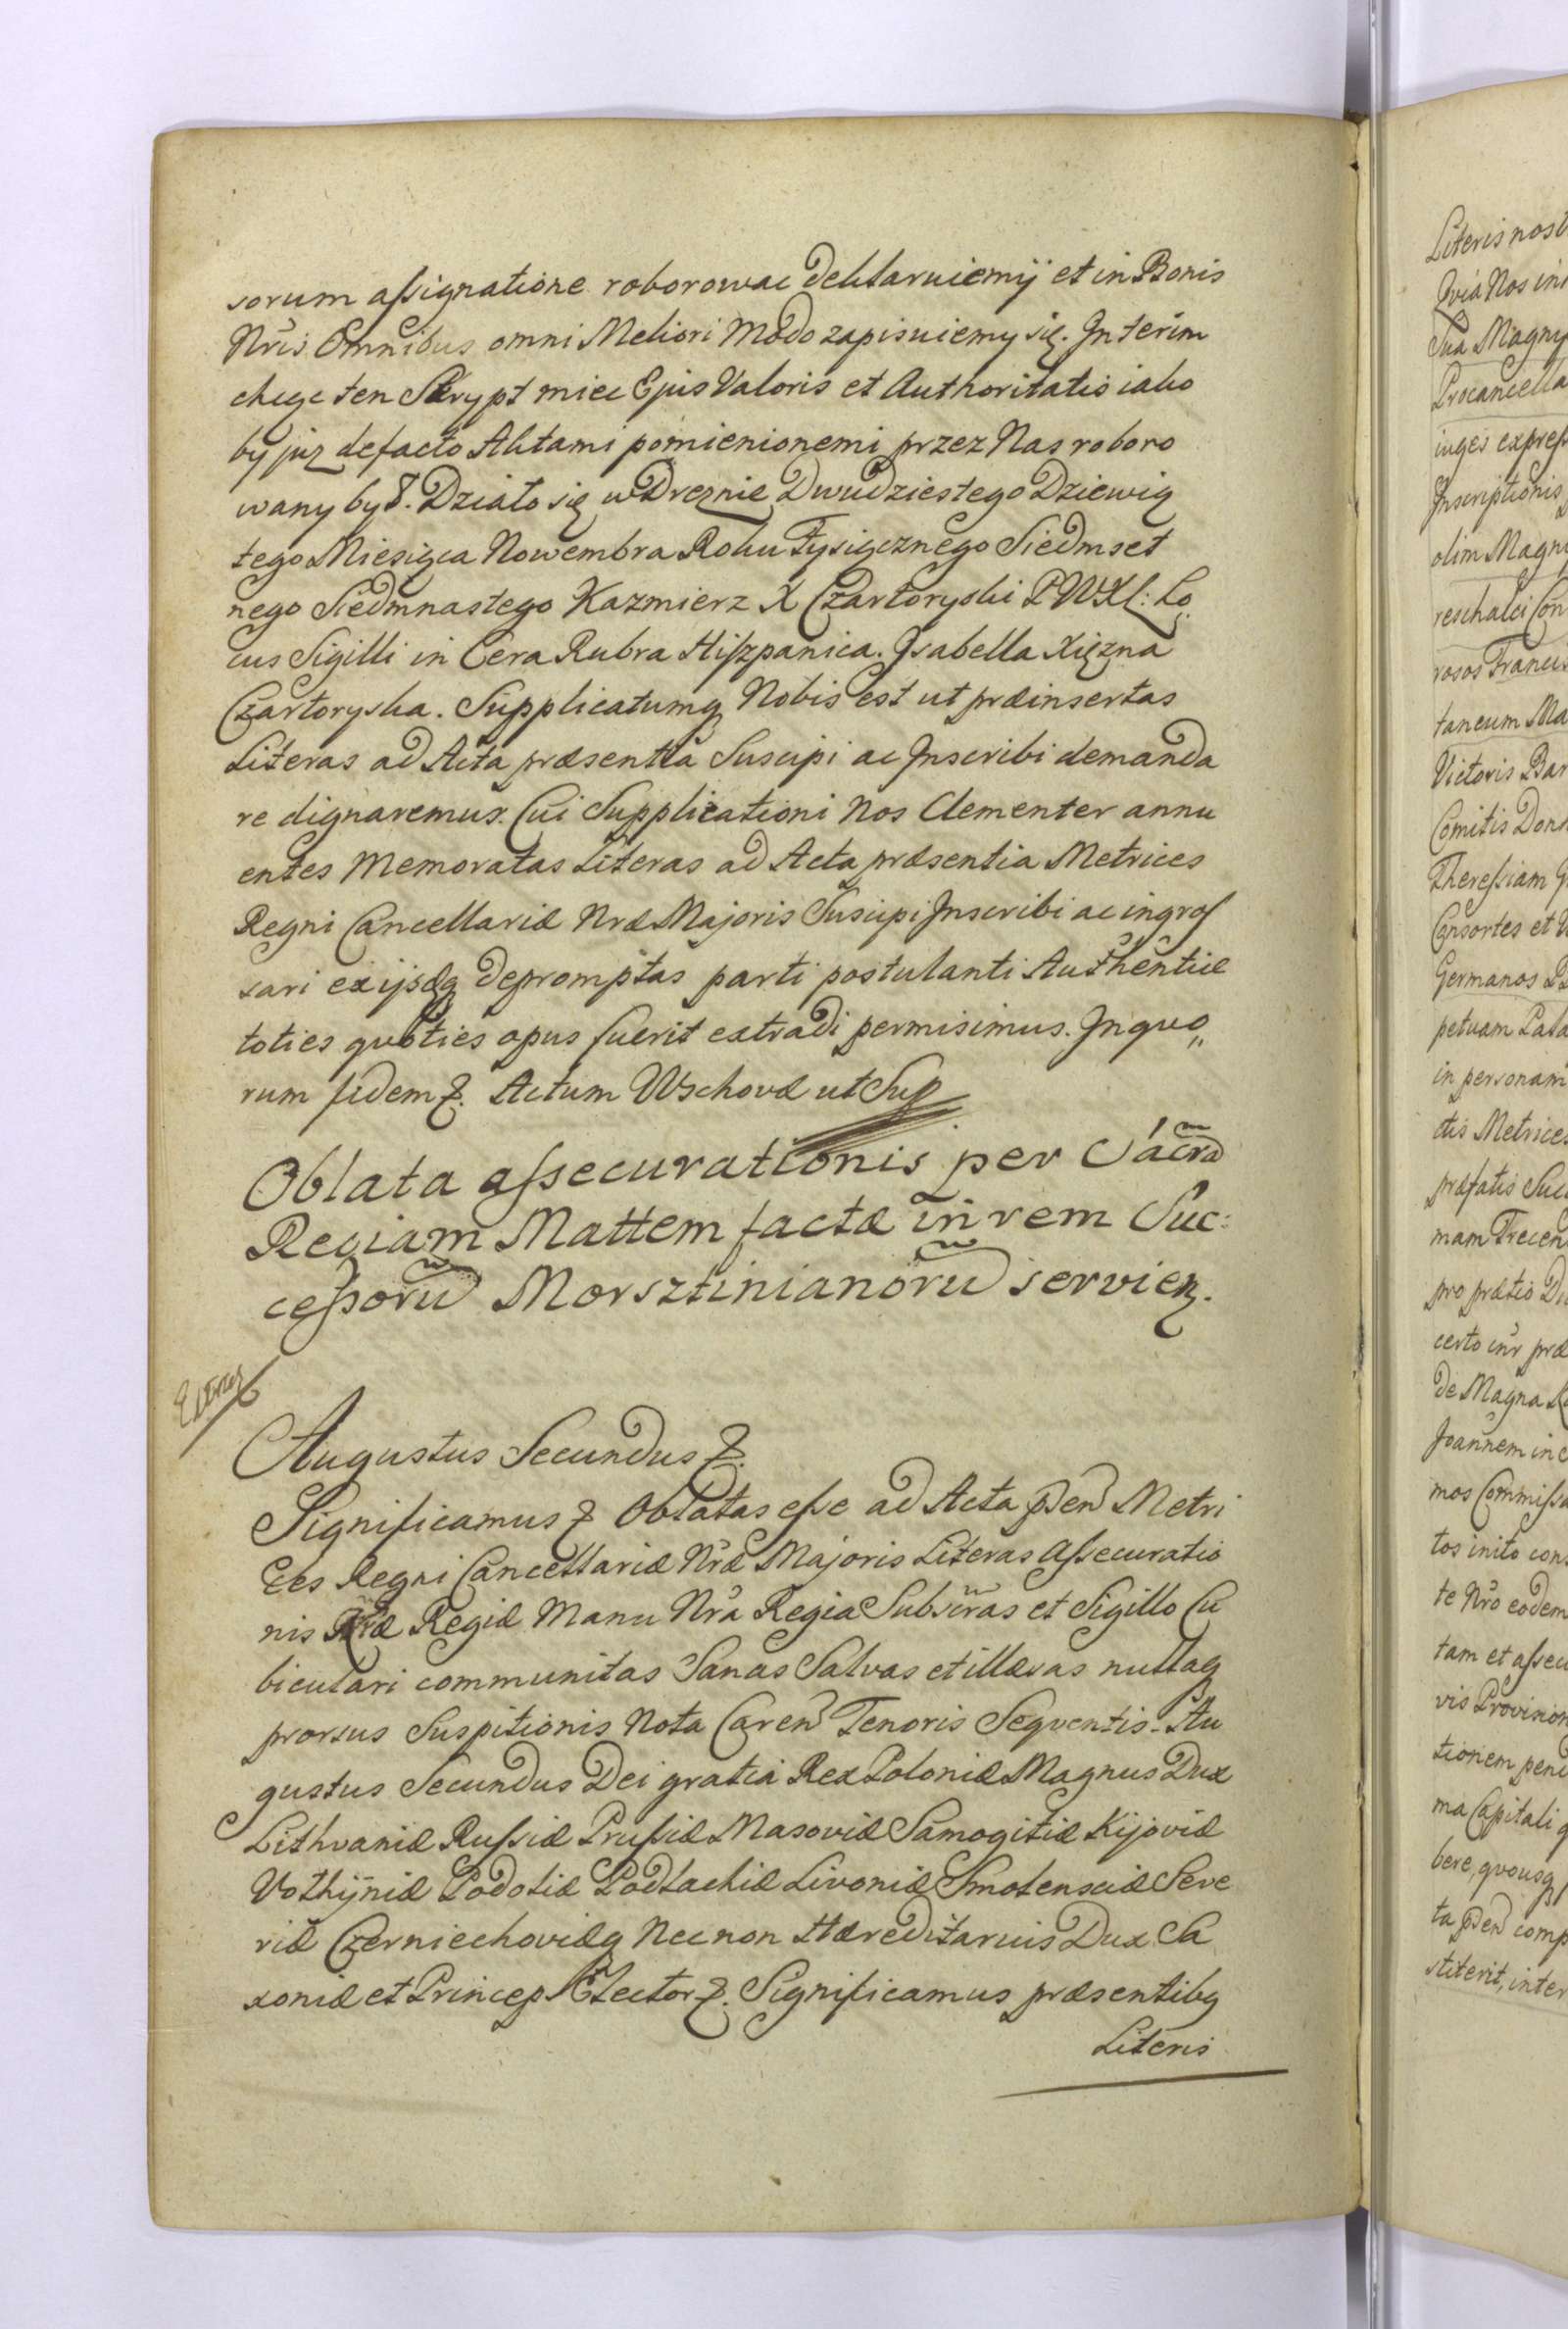 sorum assignatione roborowac deklaruiemÿ et in Bonis
Nr̃is Omnibus omni Meliori Modo zapisuiemy się. Interim
chcąc ten Skrypt miec Ejus Valoris et Authoritatis iako
by juz defacto Aktami pomienionemi przez Nas roboro
wany był. Działo się w Dreznie Dwudziestego Dziewią
tego Miesiąca Nowembra Roku Tysiącznego Siedmset
nego Siedmnastego Kazmierz X Czartoryski PWXL: Lo
cus Sigilli in Cera Rubra Hiszpanica. Isabella Xięzna
Czartoryska. Supplicatumq Nobis est ut præinsertas
Literas ad Acta præsentia Suscipi ac Inscribi demanda
re dignaremus. Cui Supplicationi Nos Clementer annu
entes Memoratas Literas ad Acta præsentia Metrices
Regni Cancellariæ Nræ Majoris Suscipi Inscribi ac ingros
sari ex ijsdq depromptas parti postulanti Authentice
toties quoties opus fuerit extradi permisimus. In quo„
rum fidem &. Actum Wschovæ ut Sup
Oblata assecurationis per Sacrã
Regiam Mattem factæ in rem Suc:
cessorũ Morsztinianorũ servien.
Augustus Secundus &.
Significamus & Oblatas esse ad Acta pn̄ Metri
ces Regni Cancellariæ Nr̃æ Majoris Literas Assecuratio
nis Nr̃æ Regiæ Manu Nr̃a Regia Subscr̃as et Sigillo Cu
biculari communitas Sanas Salvas et illæsas nullaq
prorsus Suspitionis Nota Caren Tenoris Sequentis. Au
gustus Secundus Dei gratia Rex Poloniæ Magnus Dux
Lithvaniæ Russiæ Prussiæ Masoviæ Samogitiæ Kijoviæ
Volhÿniæ Podoliæ Podlachiæ Livoniæ Smolensciæ Seve
riæ Czerniechoviæq Necnon Hæreditarius Dux Sa
xoniæ et Princeps Elector &. Significamus præsentibq
Literis
Literis nost
Qvia Nos in
Sua Magny
Procancella
iuges expres
Inscriptionis
olim Magn
reschalci Con
rosos Francis
taneum Ma
Victoris Bar
Comitis Don
Theressiam
Consortes et
Germanos
petuam Pala
in personam
ctis Metrices
præfatis Suc
mam Trecen
pro prætio Du
certo
de Magna
Joannem in c
mos Commissa
tos inito con
te Nr̃o eodem
tam et assecu
vis Provision
tionem pene
ma Capitali q
bere, qvousq
ta pn̄ comp
stiterit, inter